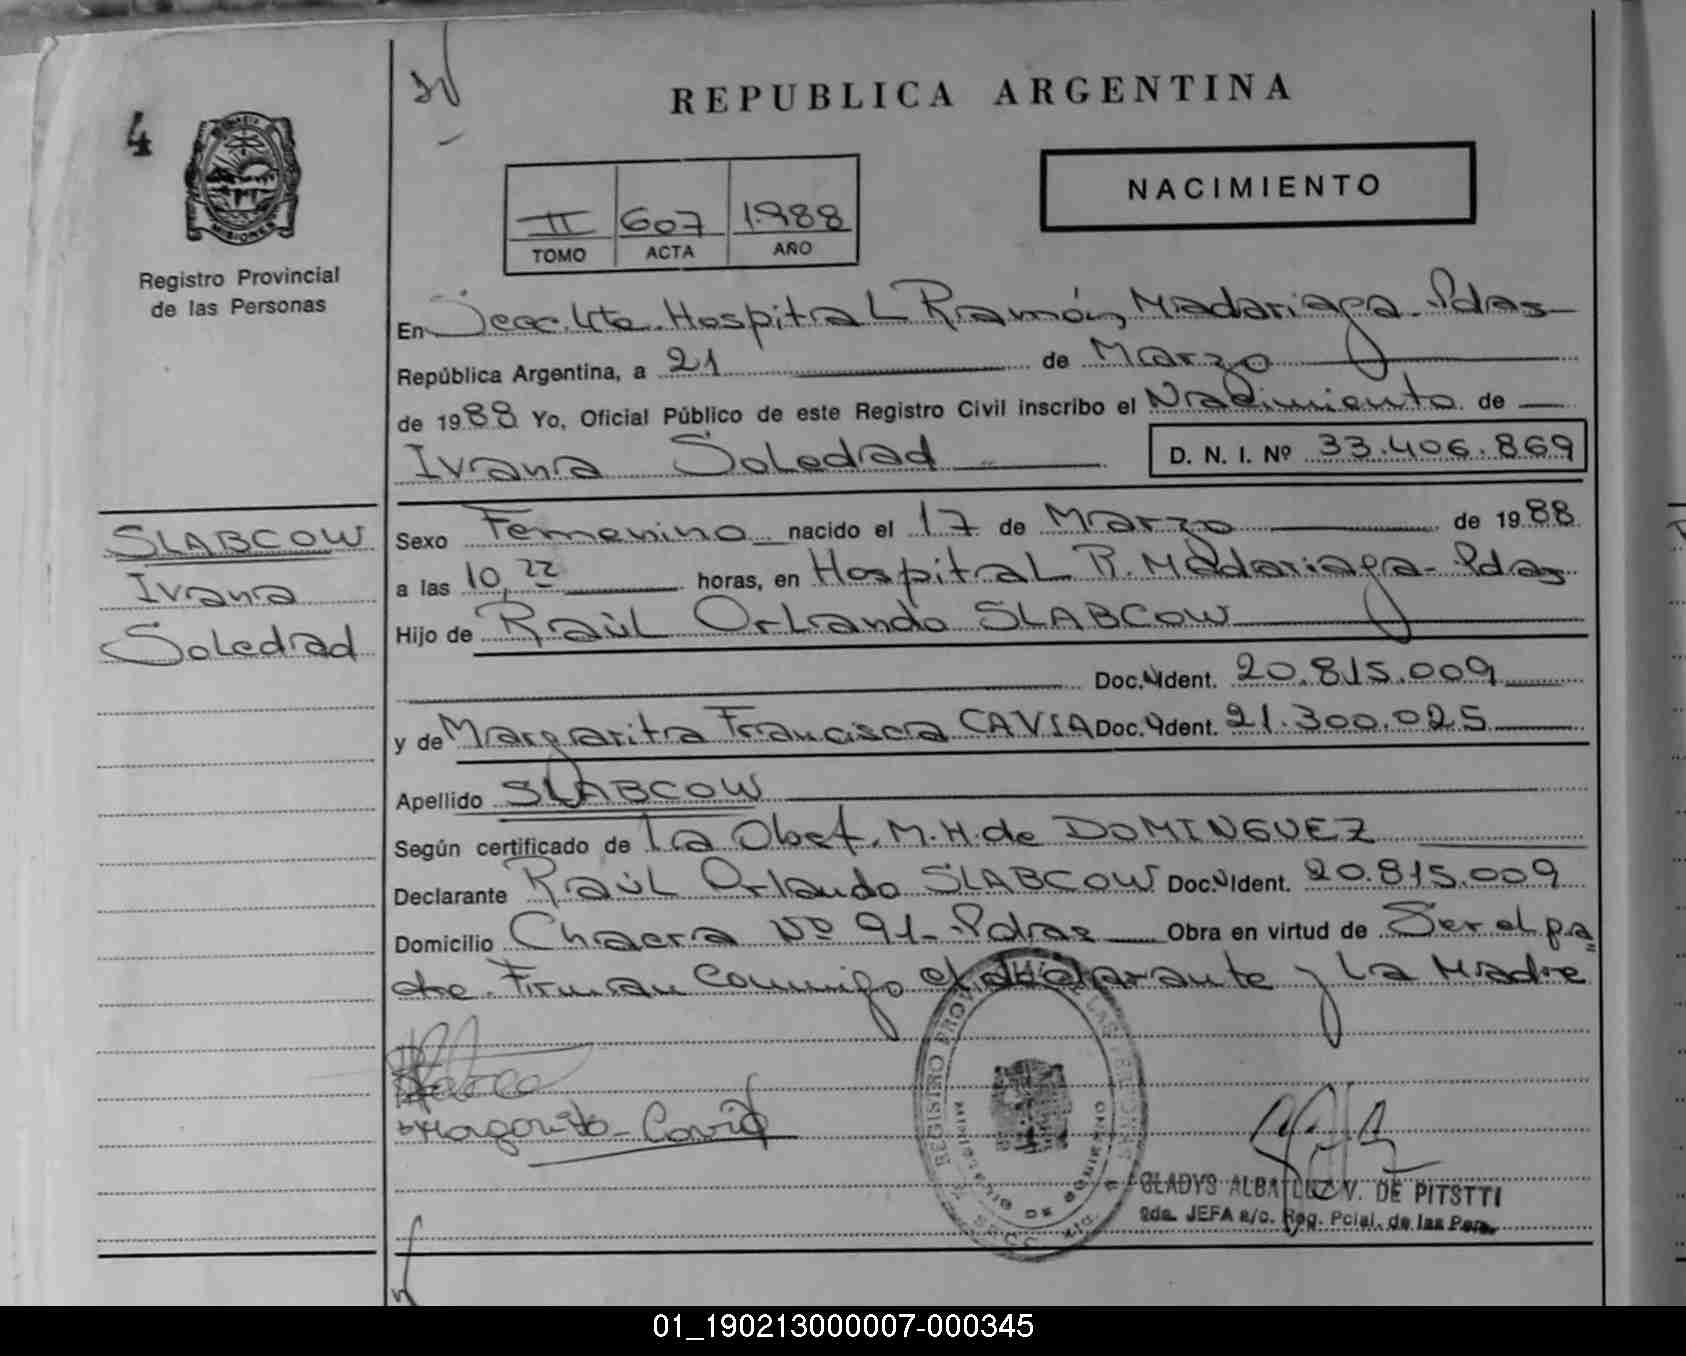 4
REPUBLICA ARGENTINA
NACIMIENTO
II 607 1.988
TOMO ACTA AÑO
MISIONES
Registro Provincial
de las Personas
En Secc. 4ta. Hospital Ramón Madariaga - Pdas
República Argentina, a 21 de Marzo
de 1988 Yo, Oficial Público de este Registro Civil inscribo el Nacimiento de
Ivana Soledad D. N. I. Nº 33.406.869
SLABCOW
Ivana
Soledad
Sexo Femenino nacido el 17 de Marzo de 1988
a las 10,22 horas, en Hospital R. Madariaga - Pdas
Hijo de Raúl Orlando SLABCOW
Doc. Ident. 20.815.009
y de Margarita Francisca CAVIA Doc. Ident. 21.300.025
Apellido SLABCOW
Según certificado de La Obst. M. H. de DOMINGUEZ
Declarante Raúl Orlando SLABCOW Doc. Ident. 20.815.009
Domicilio Chacra Nº 91 - Pdas Obra en virtud de Ser el pa=
dre. Firman Conmigo el declarante y La Madre
Margarita Cavia
REGISTRO PROV. DE LAS PERSONAS
GLADYS ALBA LUZ V. DE PITSTTI
2da. JEFA a/c. Reg. Pcial. de las Pers.
01_190213000007-000345